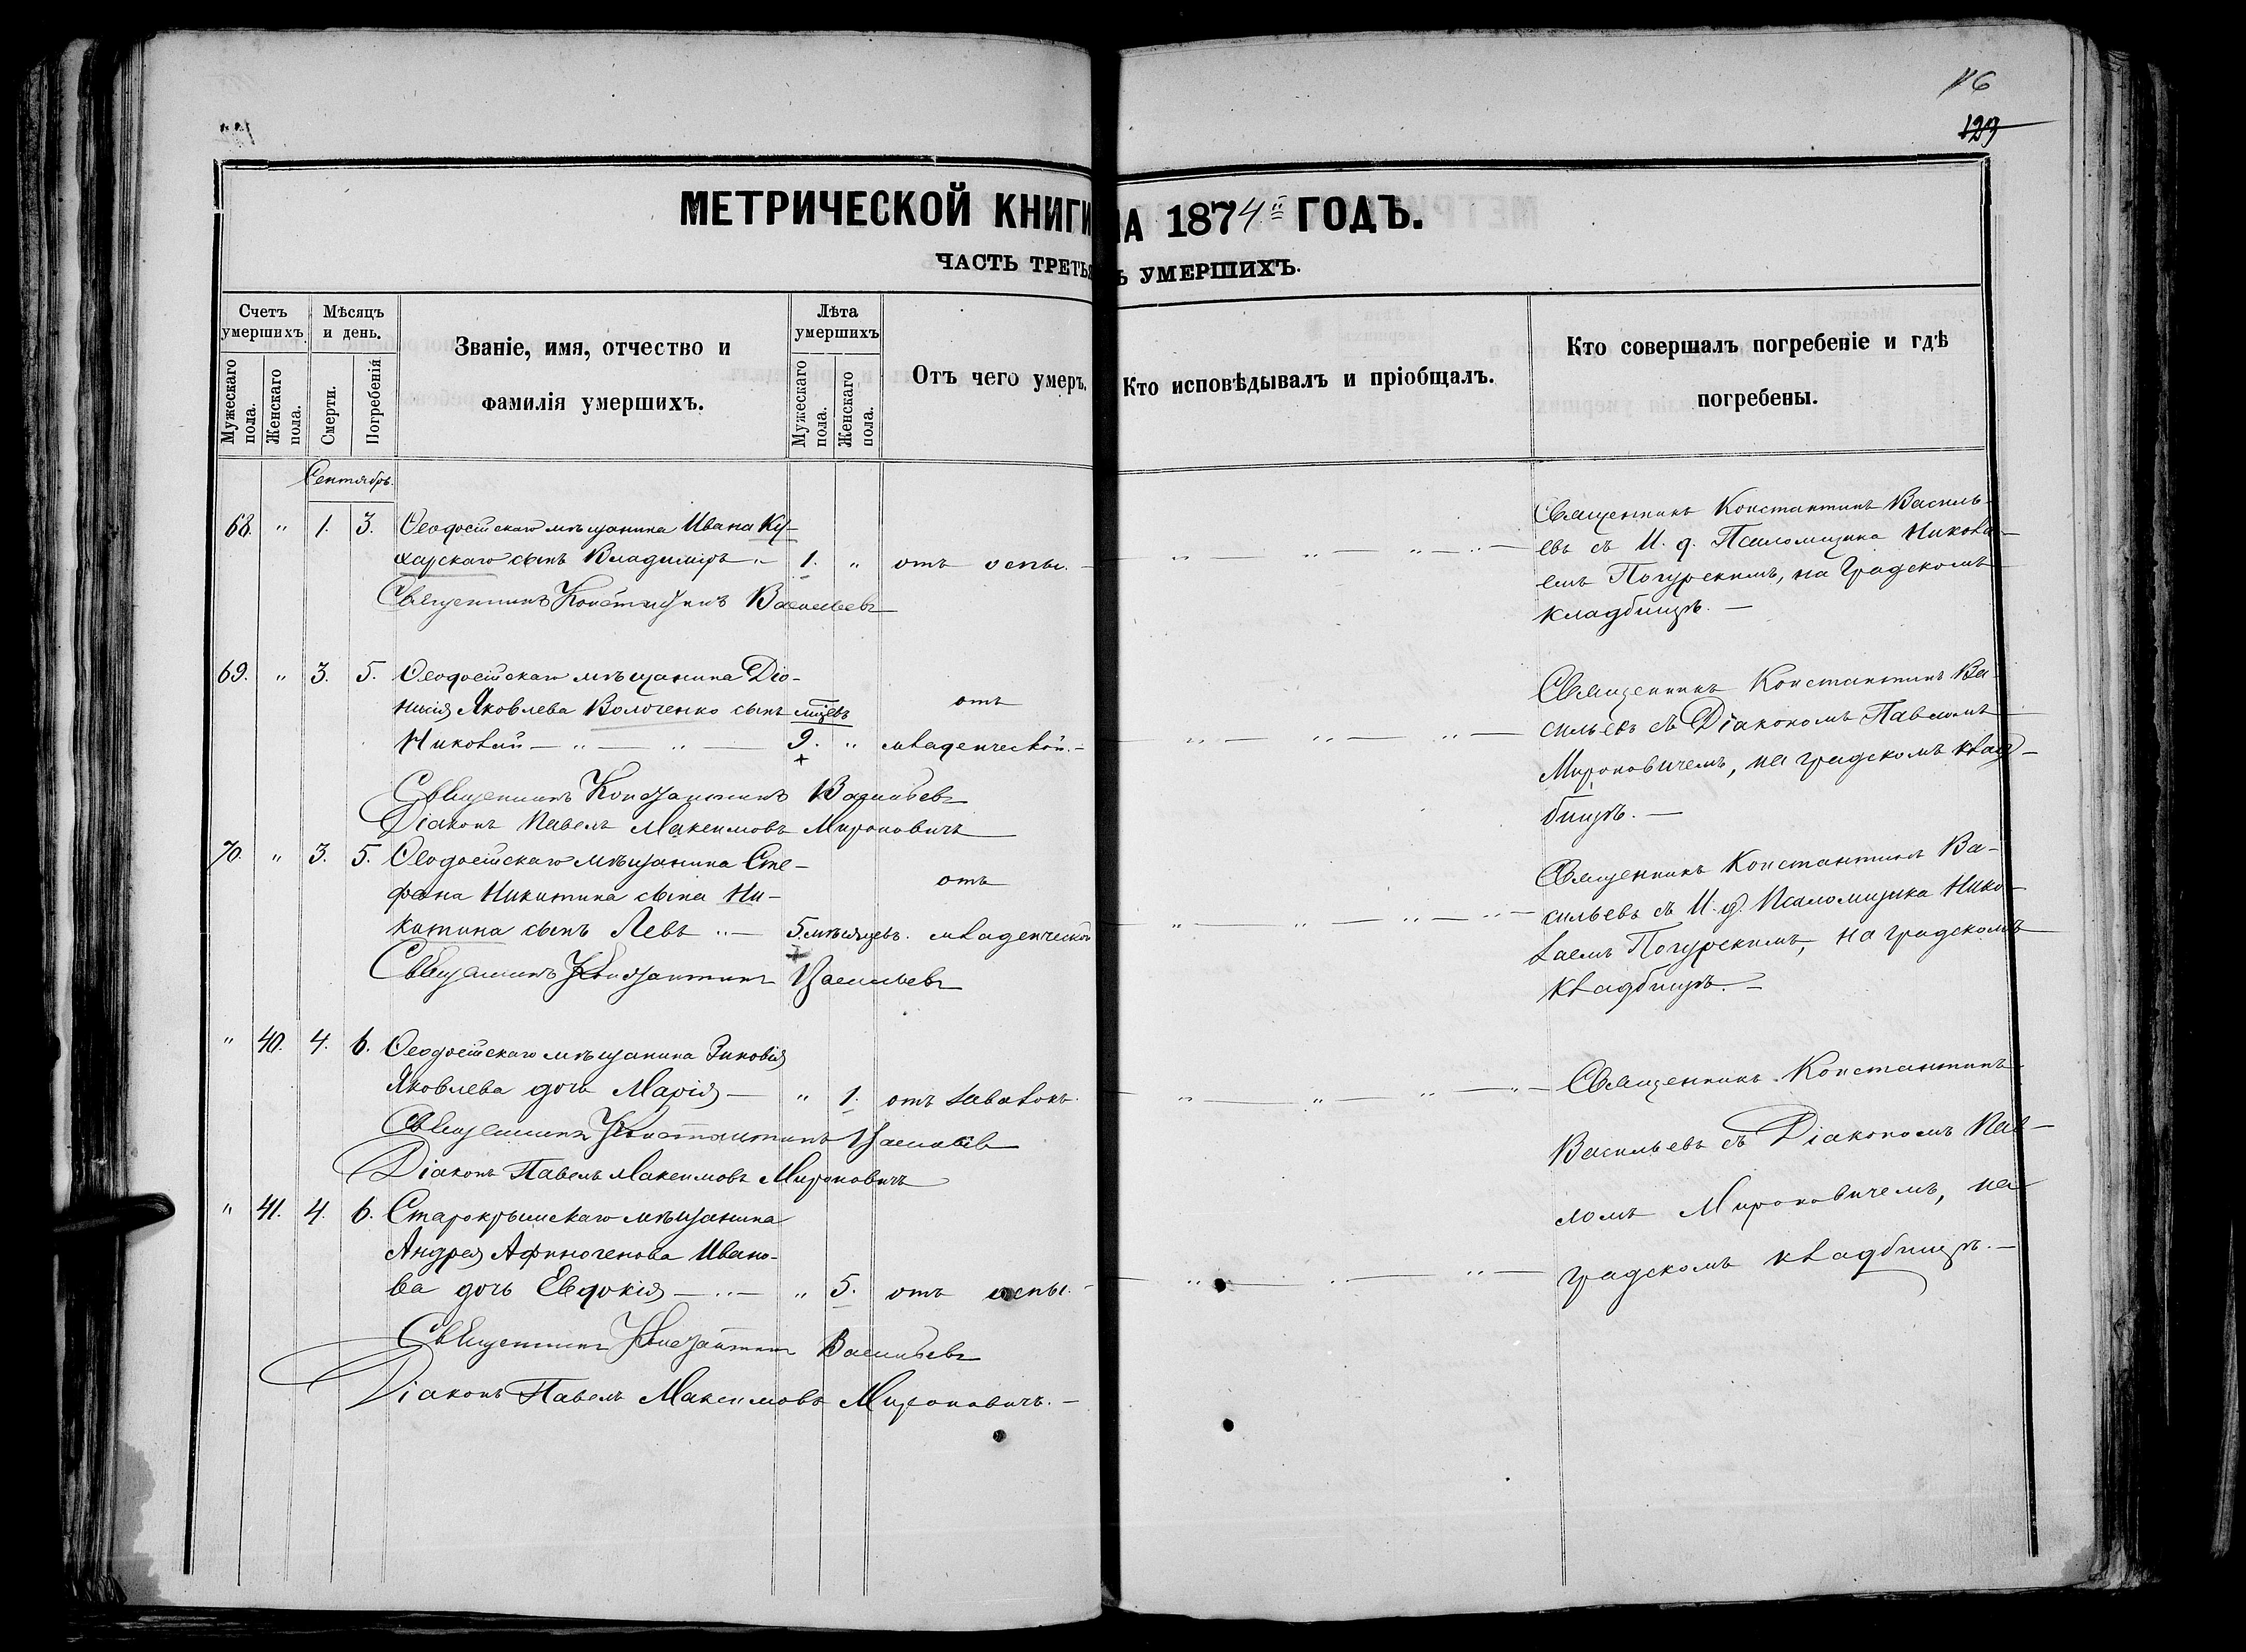 116
129
МЕТРИЧЕСКОЙ КНИГИ НА 1874й ГОДЪ.
ЧАСТЬ ТРЕТЬЯ Ъ УМЕРШИХЪ.
Счетъ умершихъ.
Мѣсяцъ и день.
Званіе, имя, отчество и фамилія умершихъ.
Лѣта умершихъ
Отъ чего умеръ.
Кто исповѣдывалъ и пріобщалъ.
Кто совершалъ погребеніе и гдѣ погребены.
Мужескаго пола.
Женскаго пола.
Смерти.
Погребенія
Мужескаго пола.
Женскаго пола.
Сентябрь.
68. " 1. 3. Ѳеодосійскаго мѣщанина Ивана Ку-
харскаго сынъ Владиміръ " 1. " отъ оспы.
Священникъ Константинъ Васильевъ
Священникъ Константинъ Василь-
евъ съ И. д. Псаломщика Никола-
емъ Погурскимъ, на Градскомъ
кладбищѣ. —
69. " 3. 5. Ѳеодосійскаго мѣщанина Діо-
нисія Яковлева Волоченко сынъ мцевъ отъ
Николай — " — " — 9. " младенческой. —
Священникъ Константинъ Васильевъ
Діаконъ Павелъ Максимовъ Мироновичъ
Священникъ Константинъ Ва-
сильевъ съ Діакономъ Павломъ
Мироновичемъ, на градскомъ клад-
бищѣ. —
70. " 3. 5. Ѳеодосійскаго мѣщанина Сте-
фана Никитина сына Ни- отъ
китина сынъ Левъ " — 5. мѣсяцевъ. младенческой
Священникъ Константинъ Васильевъ
Священникъ Константинъ Ва-
сильевъ съ И. д. Псаломщика Нико-
лаемъ Погурскимъ, на градскомъ
кладбищѣ. —
" 40. 4. 6. Ѳеодосійскаго мѣщанина Зиновія
Яковлева дочь Марія — " 1. отъ
Священникъ Константинъ Васильевъ
Діаконъ Павелъ Максимовъ Мироновичъ
" 41. 4. 6. Старокрымскаго мѣщанина
Андрея Афиногенова Ивано-
ва дочь Евдокія — " — " 5. отъ оспы. —
Священникъ Константинъ Васильевъ
Діаконъ Павелъ Максимовъ Мироновичъ. —
Священникъ Константинъ
Васильевъ съ Діакономъ Пав-
ломъ Мироновичемъ, на
градскомъ кладбищѣ. —